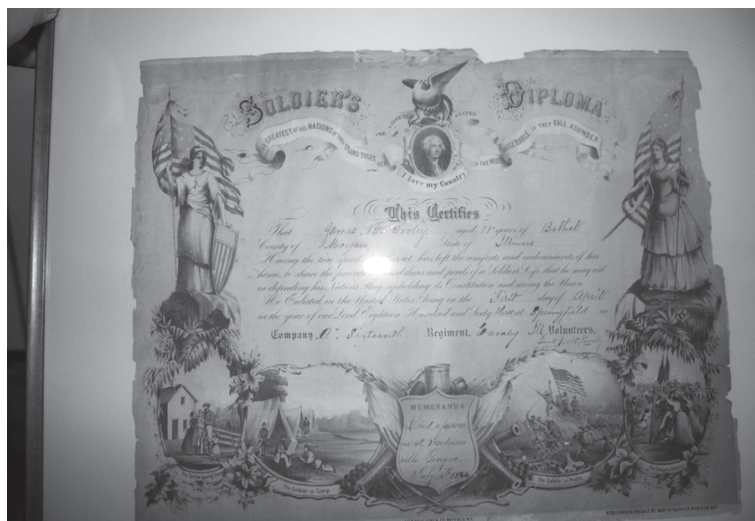 SOLDIER'S DIPLOMA
GREATEST OF ALL NATIONS IF THEY STAND TOGETHER
THE UNITED STATES
THE MOST MISERABLE IF THEY FALL ASUNDER
I love my Country
This Certifies
That James aged 18 years of Bethel
County of Morgan State of Illinois
Having the true spirit has left the comforts and endearments of his
home to share the hardships and perils of a Soldier's Life that he may aid
in defending his Nation's flag, upholding its Constitution and saving the Union
He Enlisted in the United States Army on the First day of April
in the year of our Lord Eighteen Hundred and Sixty three at Springfield in
Company Sixteenth Regiment, Cavalry Ill Volunteers.
MEMORANDA
Died a prison
er at Anderson
ville Georgia
July
The Soldier in Camp
The Soldier in Battle